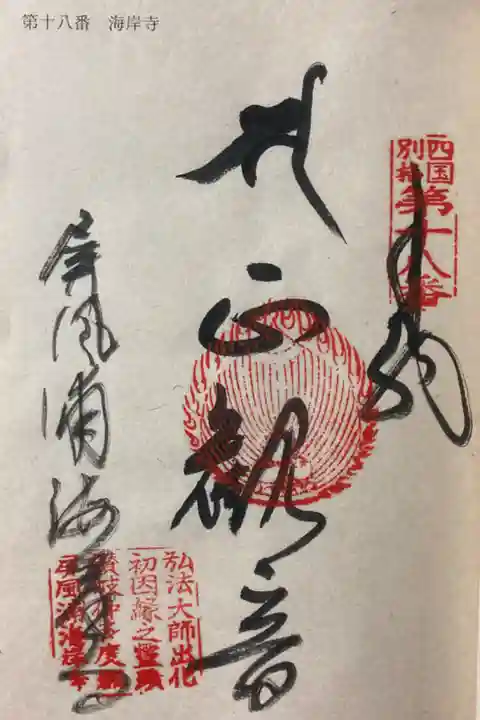 第十八番　海岸寺
四国
別格
第十八番
奉納
正観音
屏風浦海岸寺
弘法大師出化
初因縁之霊蹟
讃岐仲多度郡
屏風浦海岸寺